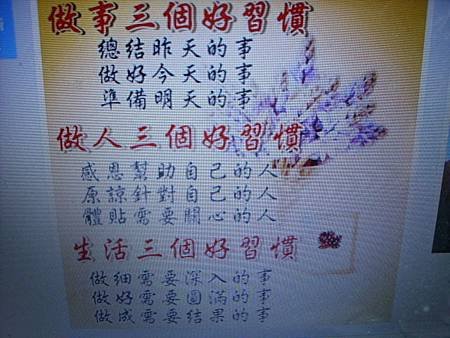 做事三個好習慣
總結昨天的事
做好今天的事
準備明天的事
做人三個好習慣
感恩幫助自己的人
原諒針對自己的人
體貼需要關心的人
生活三個好習慣
做細需要深入的事
做好需要圓滿的事
做成需要結果的事